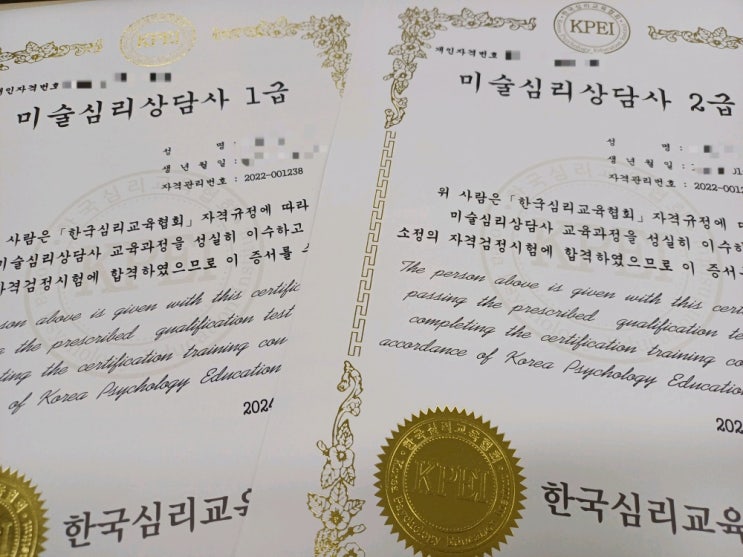 KPEI
개인자격번호
미술심리상담사 1급
성 명 :
생 년 월 일 :
자격관리번호 : 2022-001238
사람은 「한국심리교육협회」 자격규정에 따라
미술심리상담사 교육과정을 성실히 이수하고
자격검정시험에 합격하였으므로 이 증서를
person above is given with this certific
the prescribed qualification test
ting the certification training con
of Korea Psychology Education
2024
한국심리교육
KPEI
개인자격번호
미술심리상담사 2급
성 명 :
생 년 월 일 :
자격관리번호 : 2022-001
위 사람은 「한국심리교육협회」 자격규정에 따
미술심리상담사 교육과정을 성실히 이수하
소정의 자격검정시험에 합격하였으므로 이 증서
The person above is given with this certi
passing the prescribed qualification te
completing the certification training co
accordance of Korea Psychology Education
202
한국심리교육협회
KPEI
한국심리교